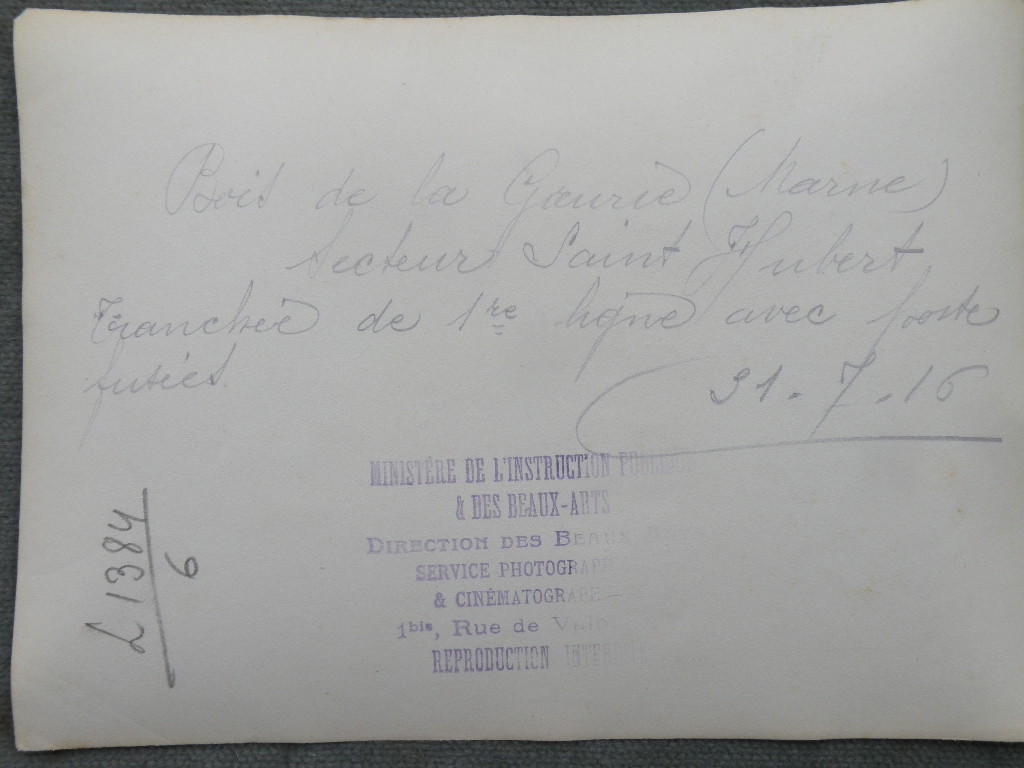 Bois de la Gruerie (Marne)
Secteur Saint Hubert
Tranchée de 1re ligne avec poste
fusées.
31.7.16
MINISTÈRE DE L'INSTRUCTION PUBLIQUE
& DES BEAUX-ARTS
DIRECTION DES BEAUX-ARTS
SERVICE PHOTOGRAPH
& CINÉMATOGRAPH
1bis, Rue de Valois
REPRODUCTION INTERDITE
L 1384
6